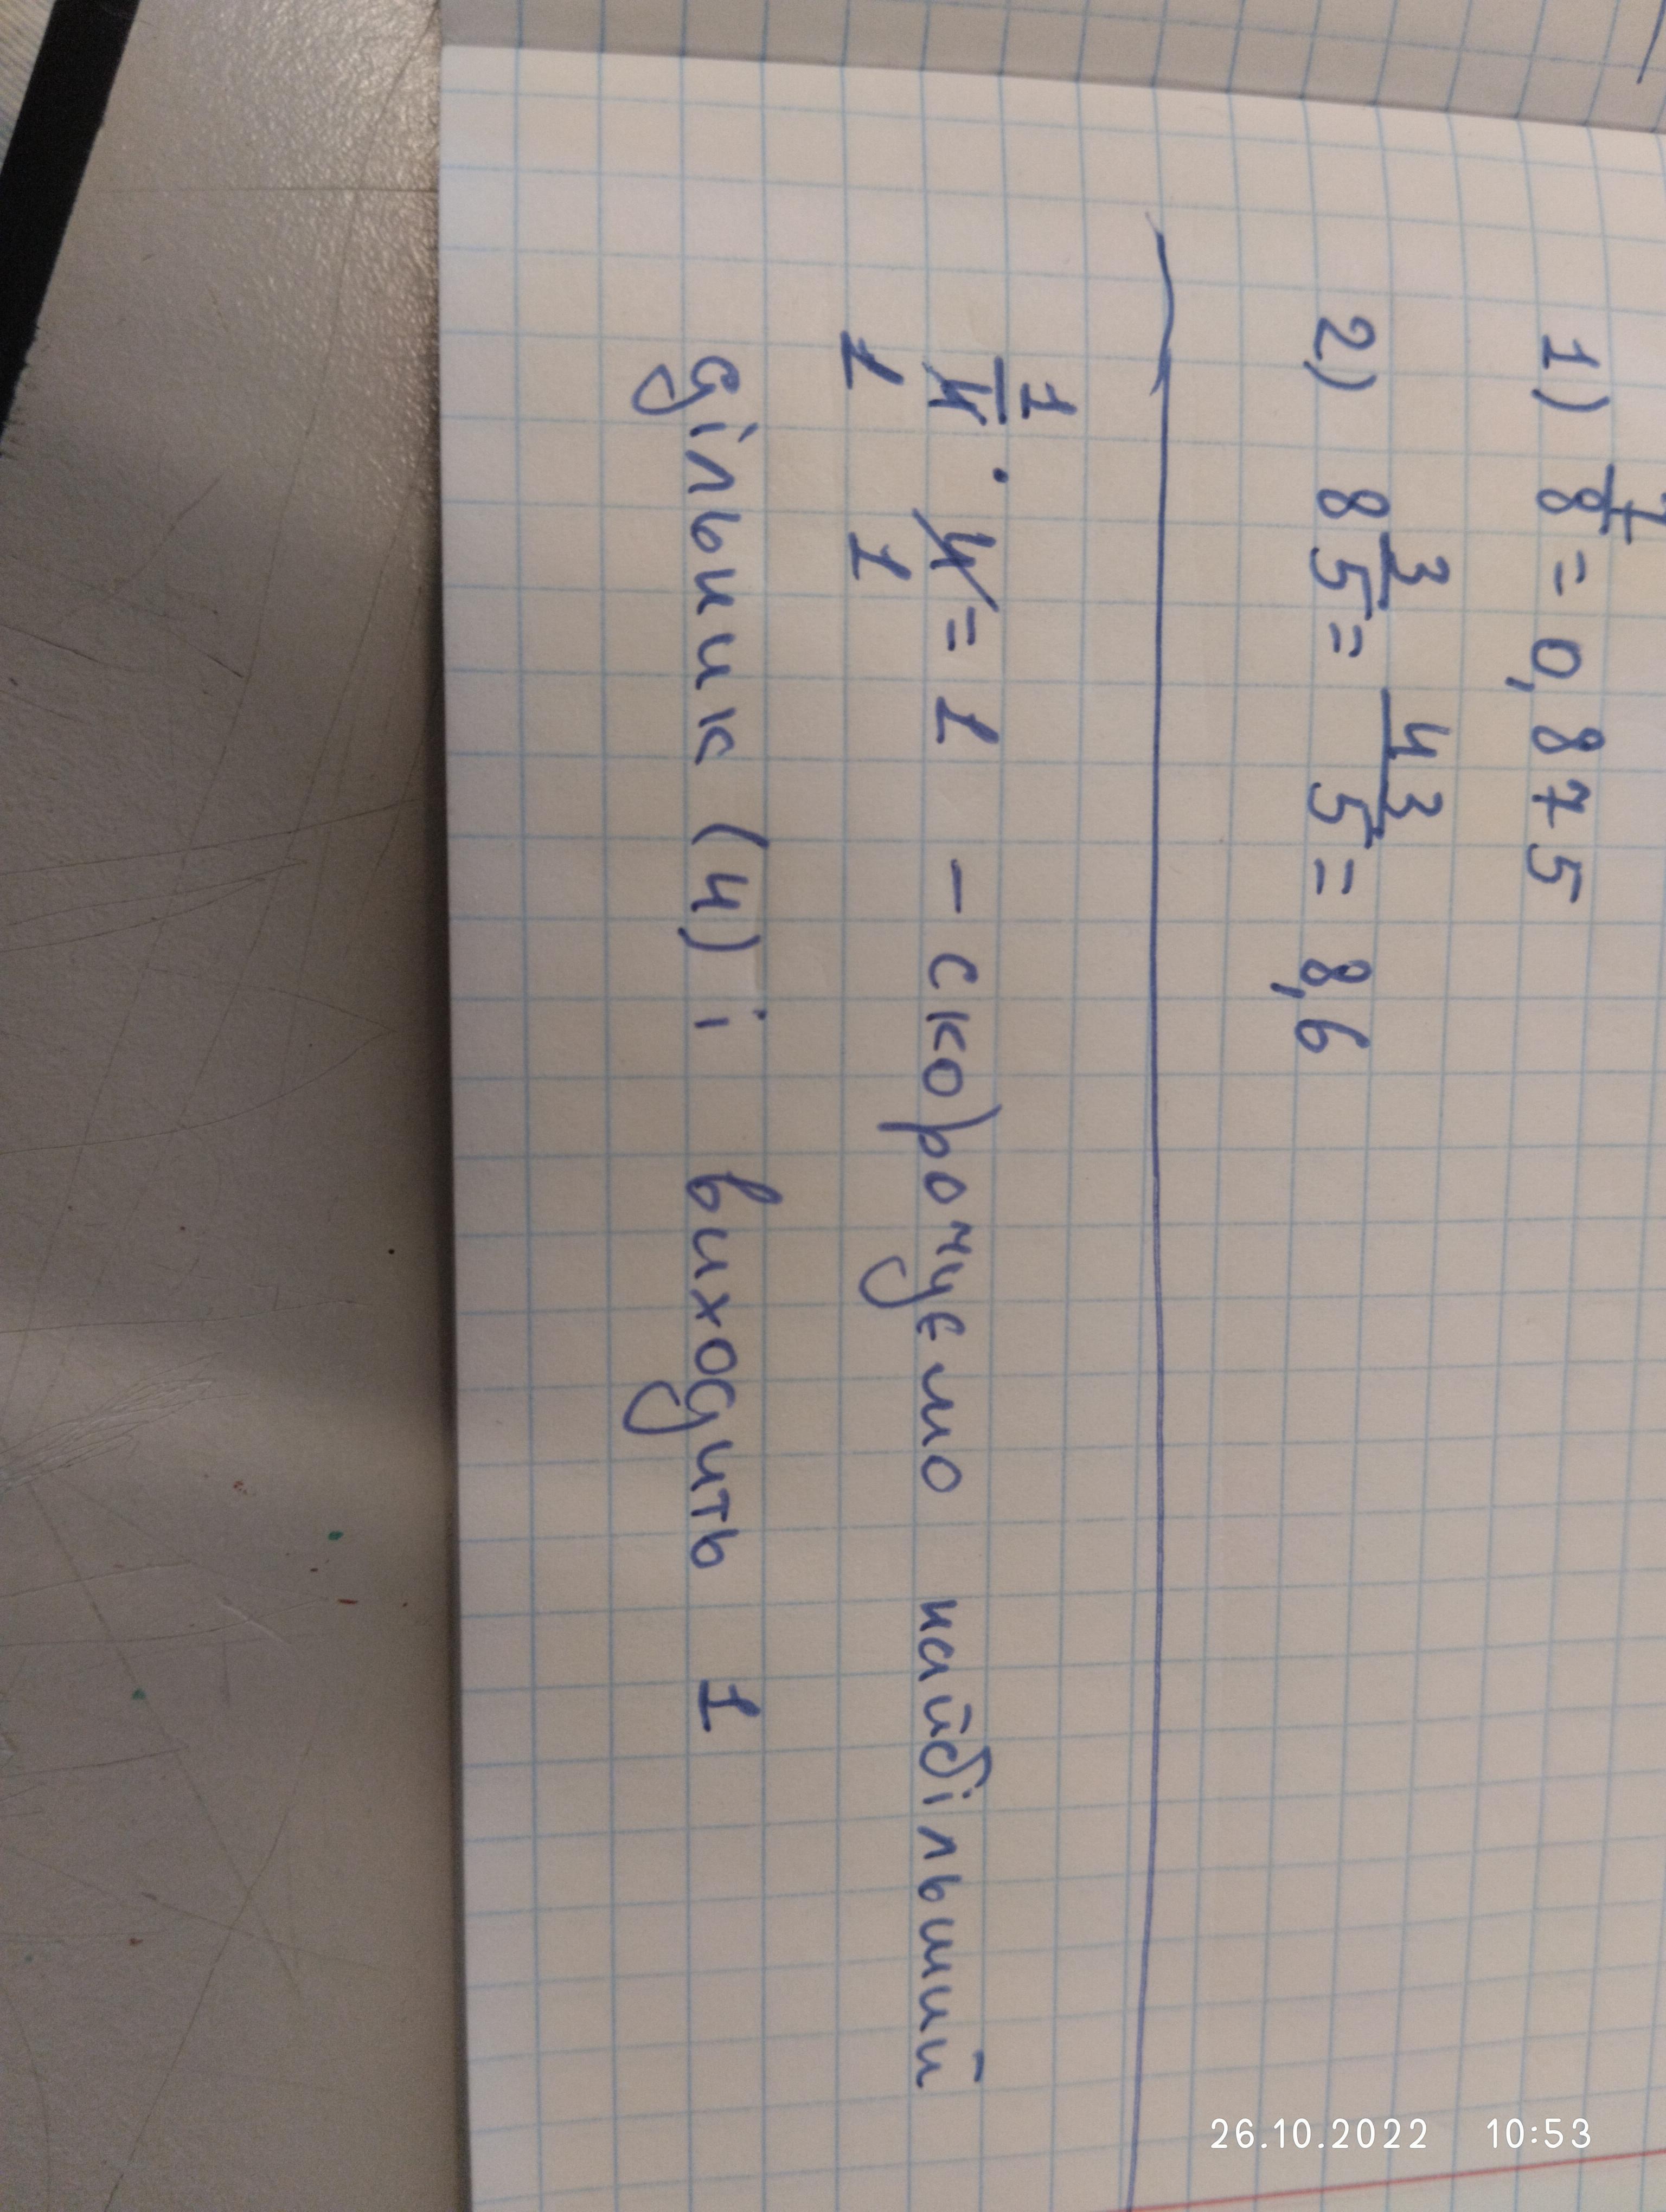 1) 7/8 = 0,875
2) 8 3/5 = 43/5 = 8,6
1/4 · 4 = 1 – скорочуємо найбільший
1 1
дільник (4) і виходить 1
26.10.2022 10:53